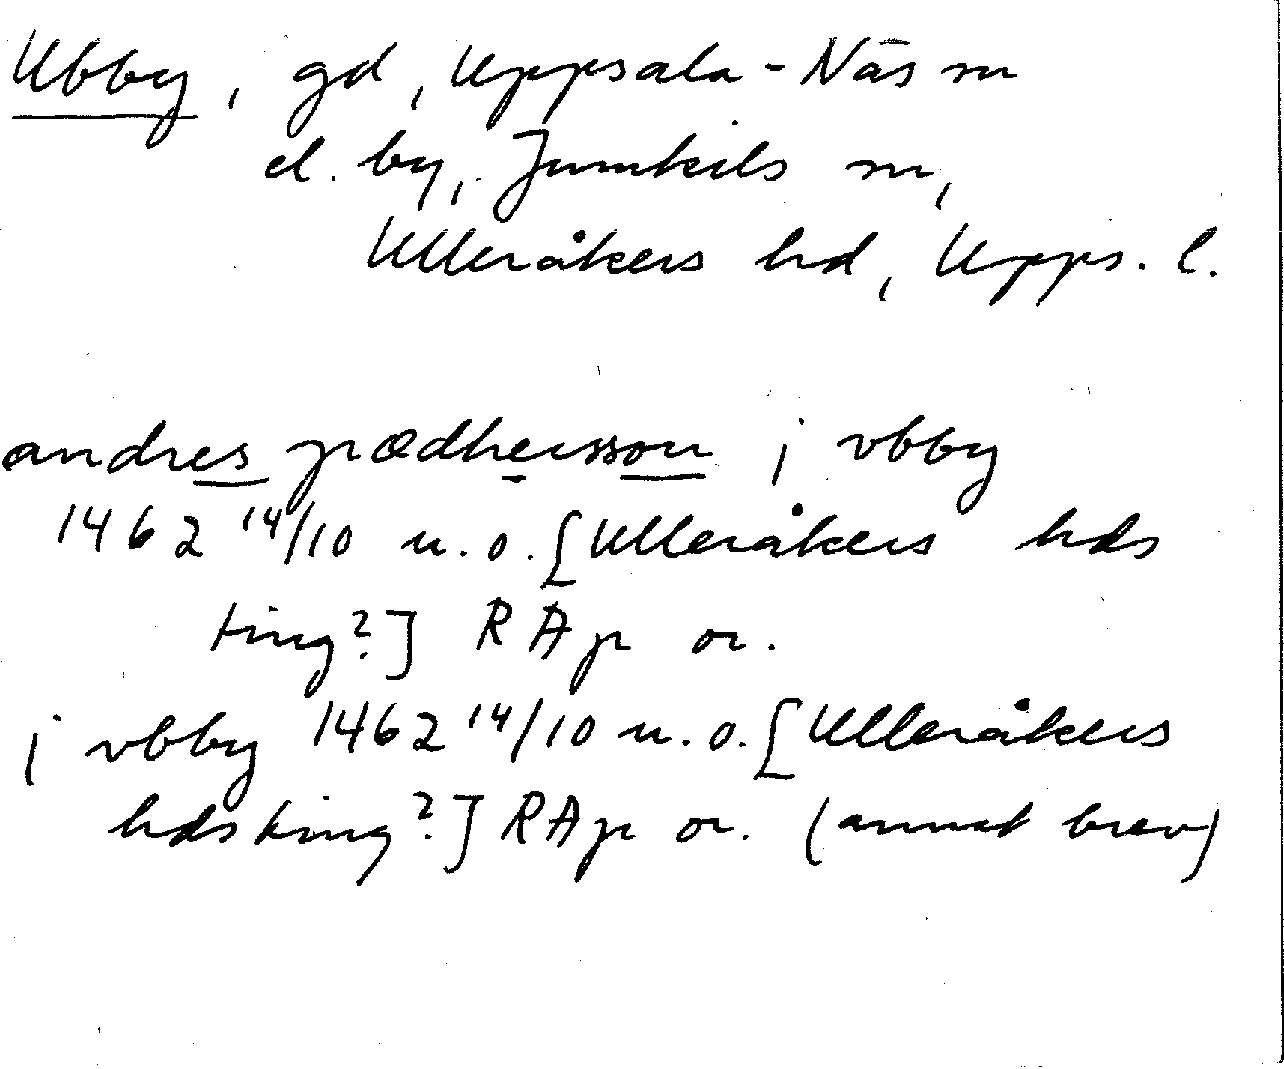 Ubby, gd, Uppsala-Näs sn
el. by, Jumkils sn,
Ulleråkers hd, Upps. l.
andres pædhersson j vbby
1462 14/10 u.o. [Ulleråkers hds
ting?] RAp or.
j vbby 1462 14/10 u.o. [Ulleråkers
hdsting?] RAp or. (annat brev)